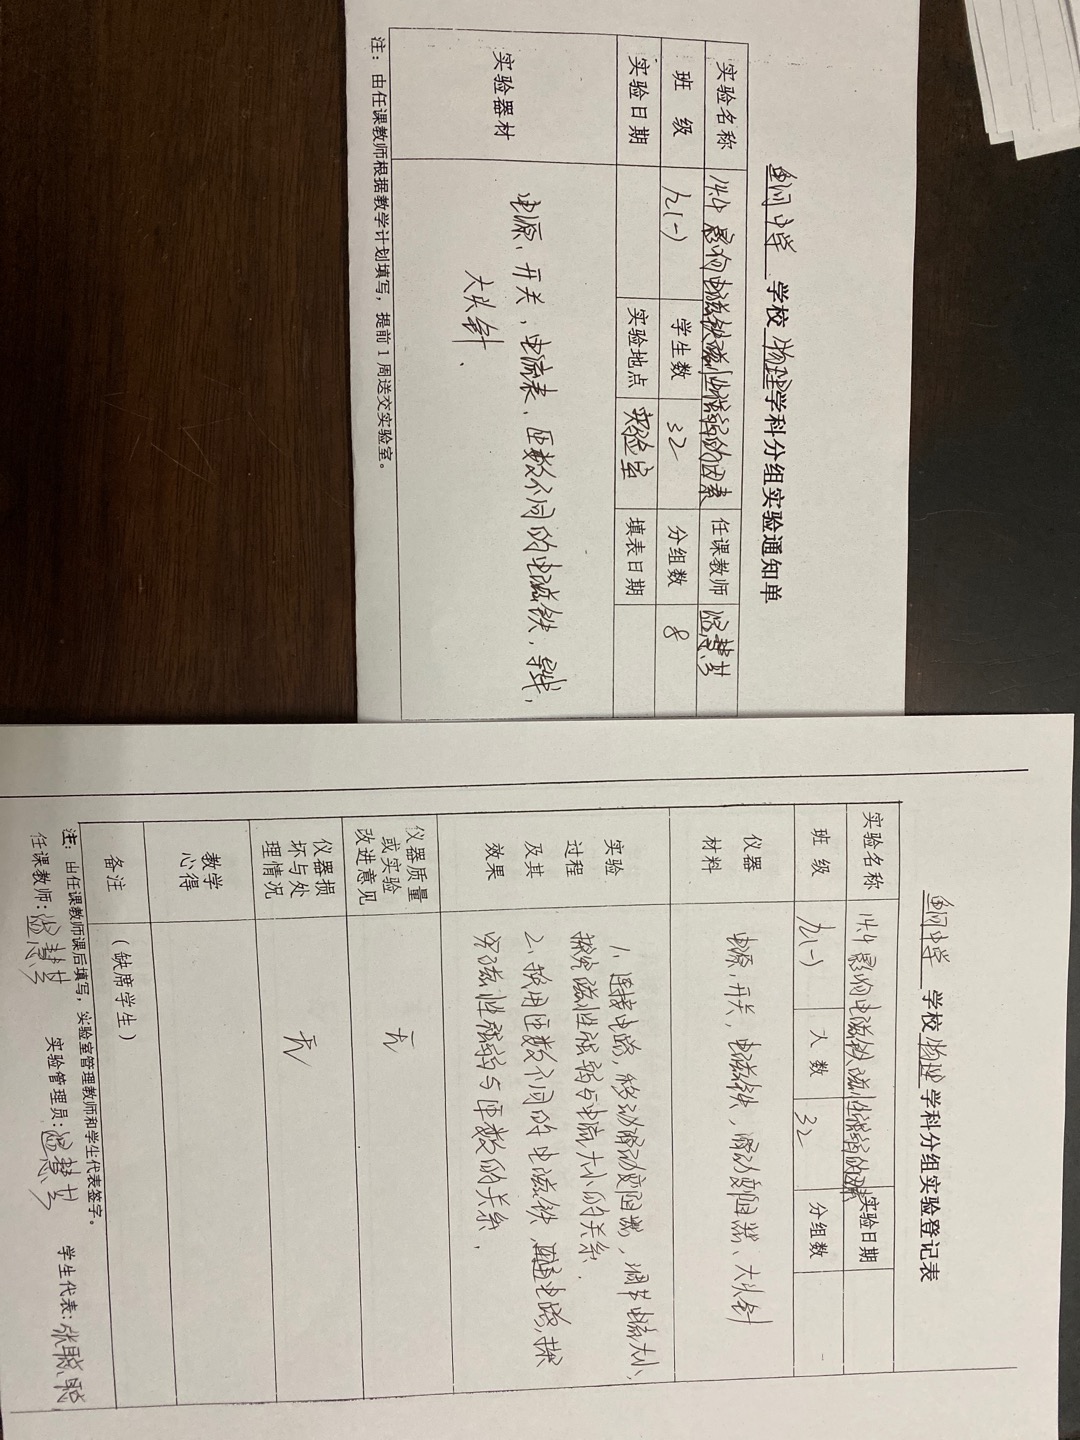 中学 学校 物理 学科分组实验通知单
实验名称 14.4 影响电磁铁磁性强弱的因素 任课教师
班 级 九(一) 学生数 32 分组数 8
实验日期 实验地点 实验室 填表日期
实验器材 电源、开关、电流表、匝数不同的电磁铁、导线、
大头针、
注：由任课教师根据教学计划填写，提前1周送交实验室。
中学 学校 物理 学科分组实验登记表
实验名称 14.4 影响电磁铁磁性强弱的 实验日期
班 级 九(一) 人 数 32 分组数
仪器
材料
电源、开关、电磁铁、滑动变阻器、大头针
实验
过程
及其
效果
1、连接电路，移动滑动变阻器，调节电流大小，
探究磁性强弱与电流大小的关系.
2、换用匝数不同的电磁铁，电路，探
究磁性强弱与匝数的关系.
仪器质量
或实验
改进意见
无
仪器损
坏与处
理情况
无
教学
心得
备注 （缺席学生）
注：由任课教师课后填写，实验室管理教师和学生代表签字。
任课教师: 实验管理员: 学生代表: 张聪聪